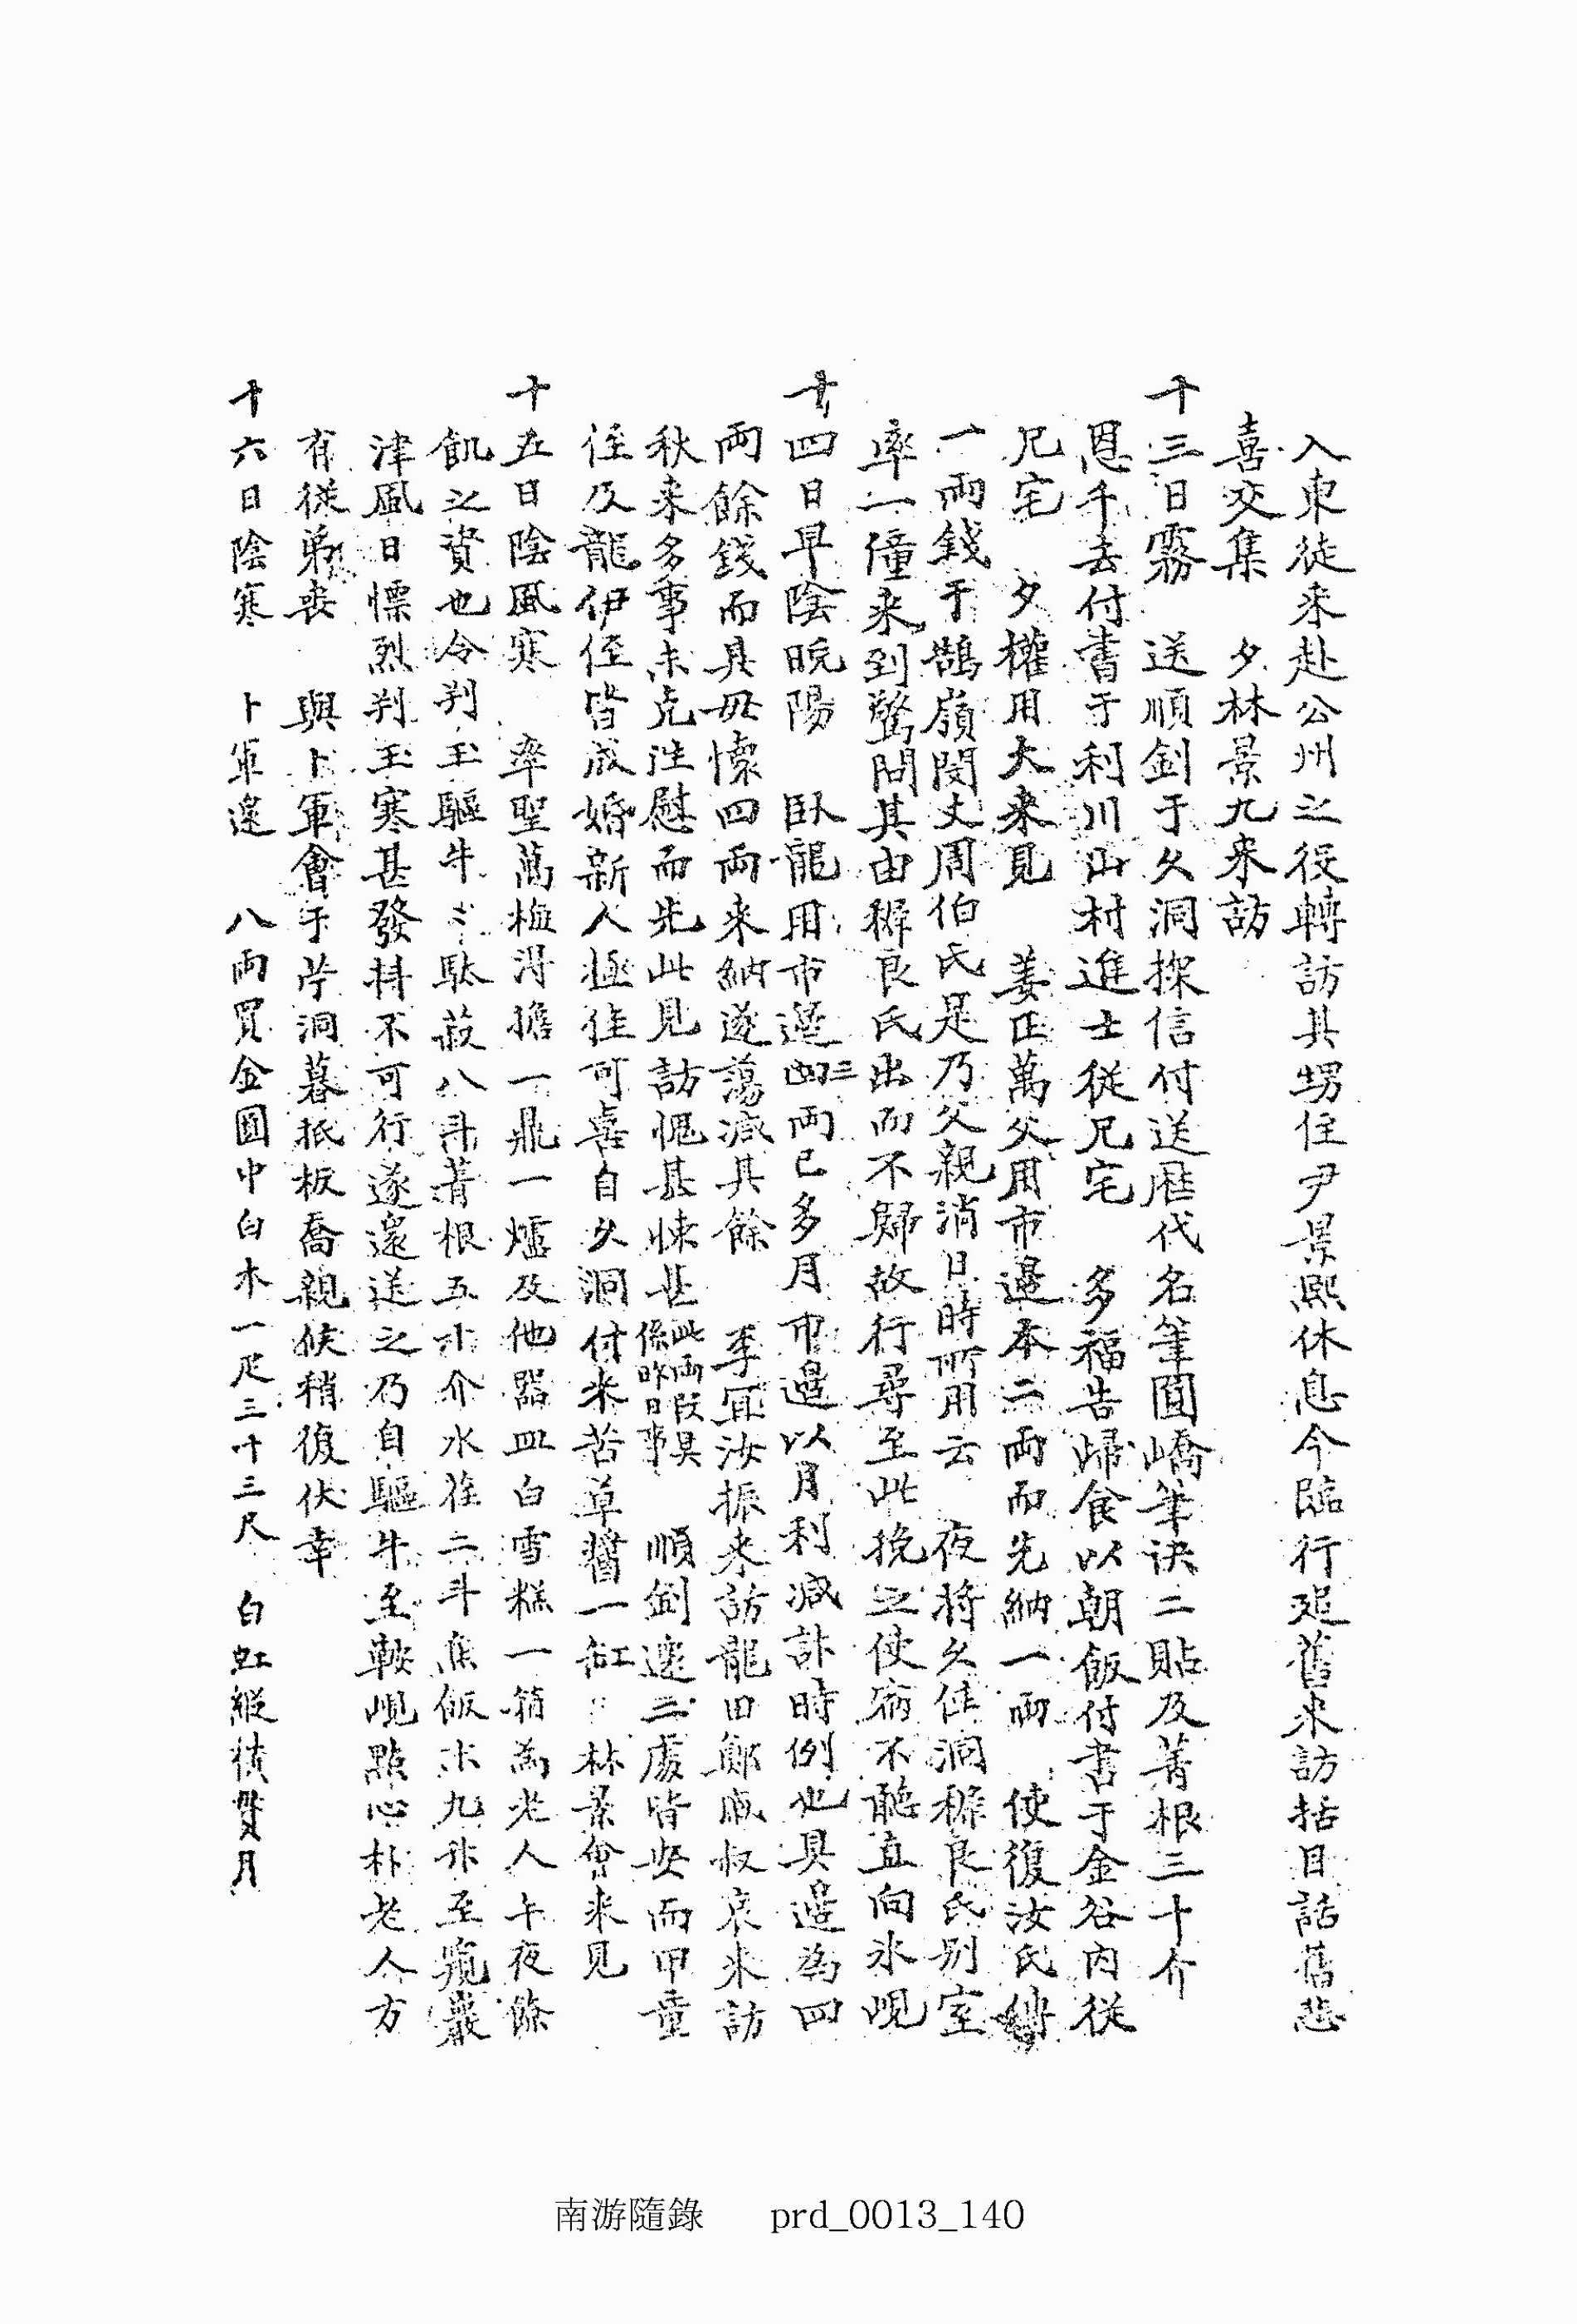 入東徒来赴公州之役轉訪其甥住尹景熙休息今臨行追舊来訪括目話舊悲
喜交集 夕林景九来訪
十三日霧 送順釗于久洞探信付送歴代名筆圓嶠筆决二貼及菁根三十介
恩千去付書于利川山村進士従兄宅 多福告歸食以朝飯付書于金谷内従
兄宅 夕權用大来見 姜正萬父用市邊本二兩而先納一兩 使復汝氏
一兩錢于鵲嶺閔丈周伯氏是乃父親消日時所用云 夜將久佳洞穉良氏别室
率一僮来到驚問其由穉良氏出而不歸故行尋至此挽之使宿不聽直向氷峴
十四日早陰晩陽 臥龍用市邊三兩已多月市邊以月利减計時例也其邊為四
兩餘錢而其母懐四兩来納遂蕩减其餘 李冝汝振来訪龍田鄭戚叔哀来訪
秋来多事未克徃慰而先此見訪愧甚悚甚此兩段某係昨日事 順釗還二處皆安而甲童
侄及龍伊侄皆成婚新人極佳可喜自久洞付来苦草醬一缸 林景會来見
十五日陰風寒 率聖萬梅得擔一鼎一爐及他器皿白雪糕一箱為老人午夜餘
飢之資也令判玉驅牛〻駄菽八斗菁根五十介水荏二斗 飯米九升至鷹巖
津風日慄烈判玉寒甚發抖不可行遂還送之乃自驅牛至鞍峴點心朴老人方
有従弟喪 與卜軍會于芹洞暮抵板喬親候稍復伏幸
十六日陰寒 卜軍還 八兩買金圓中白木一疋三十三尺 白虹縱横貫月
南游隨錄 prd_0013_140